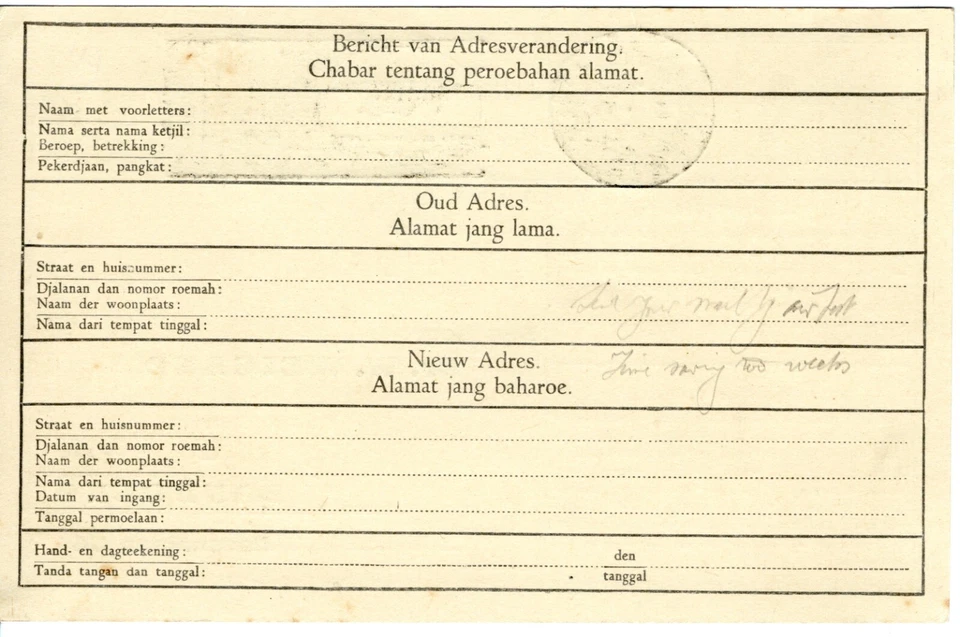 Bericht van Adresverandering.
Chabar tentang peroebahan alamat.
Naam met voorletters:
Nama serta nama ketjil:
Beroep, betrekking:
Pekerdjaan, pangkat:
Oud Adres.
Alamat jang lama.
Straat en huisnummer:
Djalanan dan nomor roemah:
Naam der woonplaats:
Nama dari tempat tinggal:
your mail by air post
Nieuw Adres.
Time saving two weeks
Alamat jang baharoe.
Straat en huisnummer:
Djalanan dan nomor roemah:
Naam der woonplaats:
Nama dari tempat tinggal:
Datum van ingang:
Tanggal permoelaan:
Hand- en dagteekening: den
Tanda tangan dan tanggal: tanggal